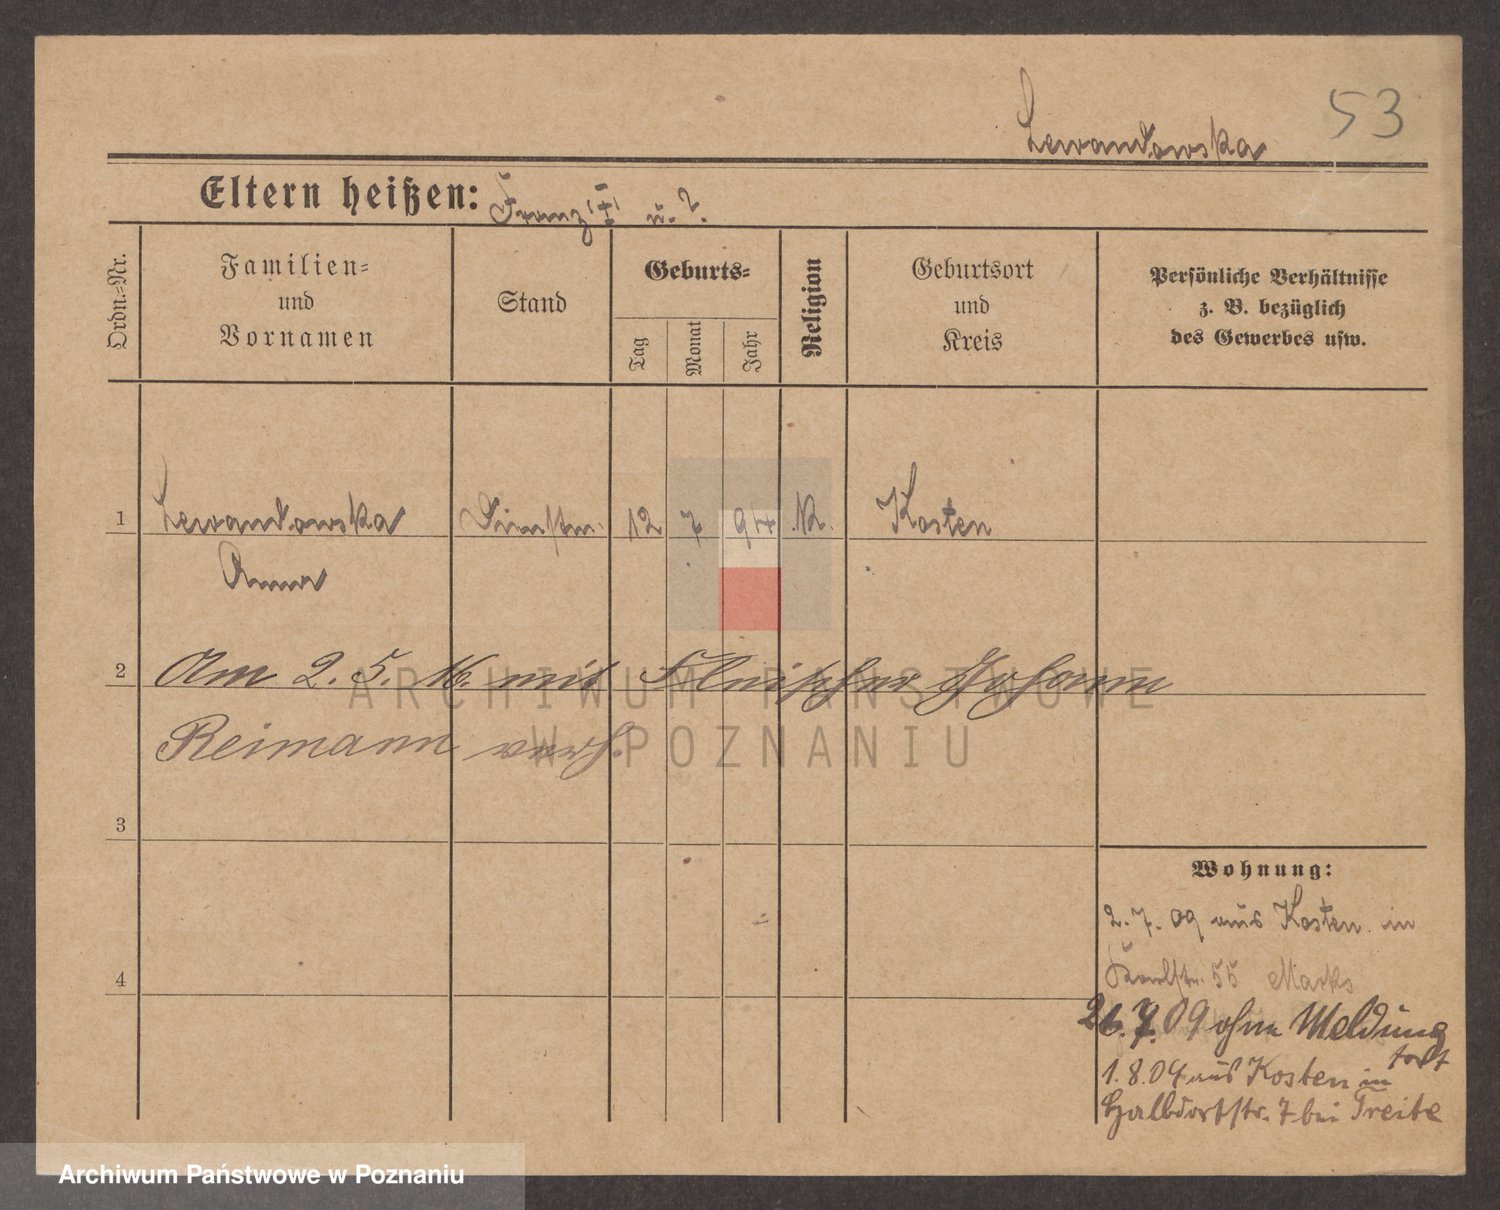 53
Lewandowska
Eltern heißen: Franz (†) u. ?.
Ordn.-Nr.
Familien- und Vornamen
Stand
Geburts-
Tag
Monat
Jahr
Religion
Geburtsort und Kreis
Persönliche Verhältnisse
z. B. bezüglich
des Gewerbes usw.
1 Lewandowska Dienstm. 12 7 94 K. Kosten
Anna
2 Am 2. 5. 16. mit Fleischer Johann
Reimann verh.
3
4
Wohnung:
2. 7. 09 aus Kosten in
55 Marks
26. 7. 09 ohne Meldung
fort
1. 8. 09 aus Kosten in
Halbdorfstr. 7 bei Treite
ARCHIWUM PAŃSTWOWE
W POZNANIU
Archiwum Państwowe w Poznaniu